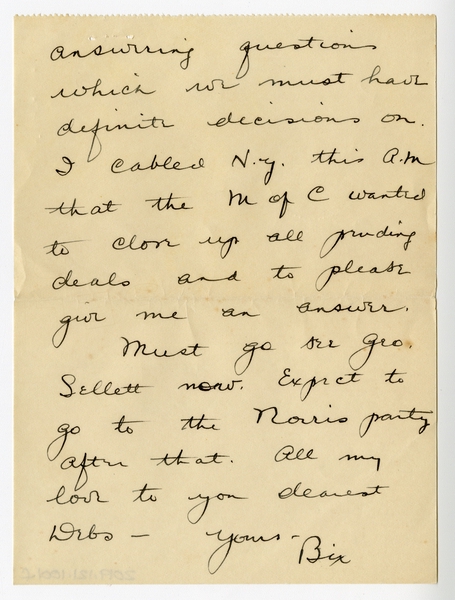 answering questions
which we must have
definite decisions on.
I cabled N.Y. this A.M
that the M of C wanted
to close up all pending
deals and to please
give me an answer.
Must go see Geo.
Sellett now. Expect to
go to the Norris party
after that. All my
love to you dearest
Debs - Yours -
Bix